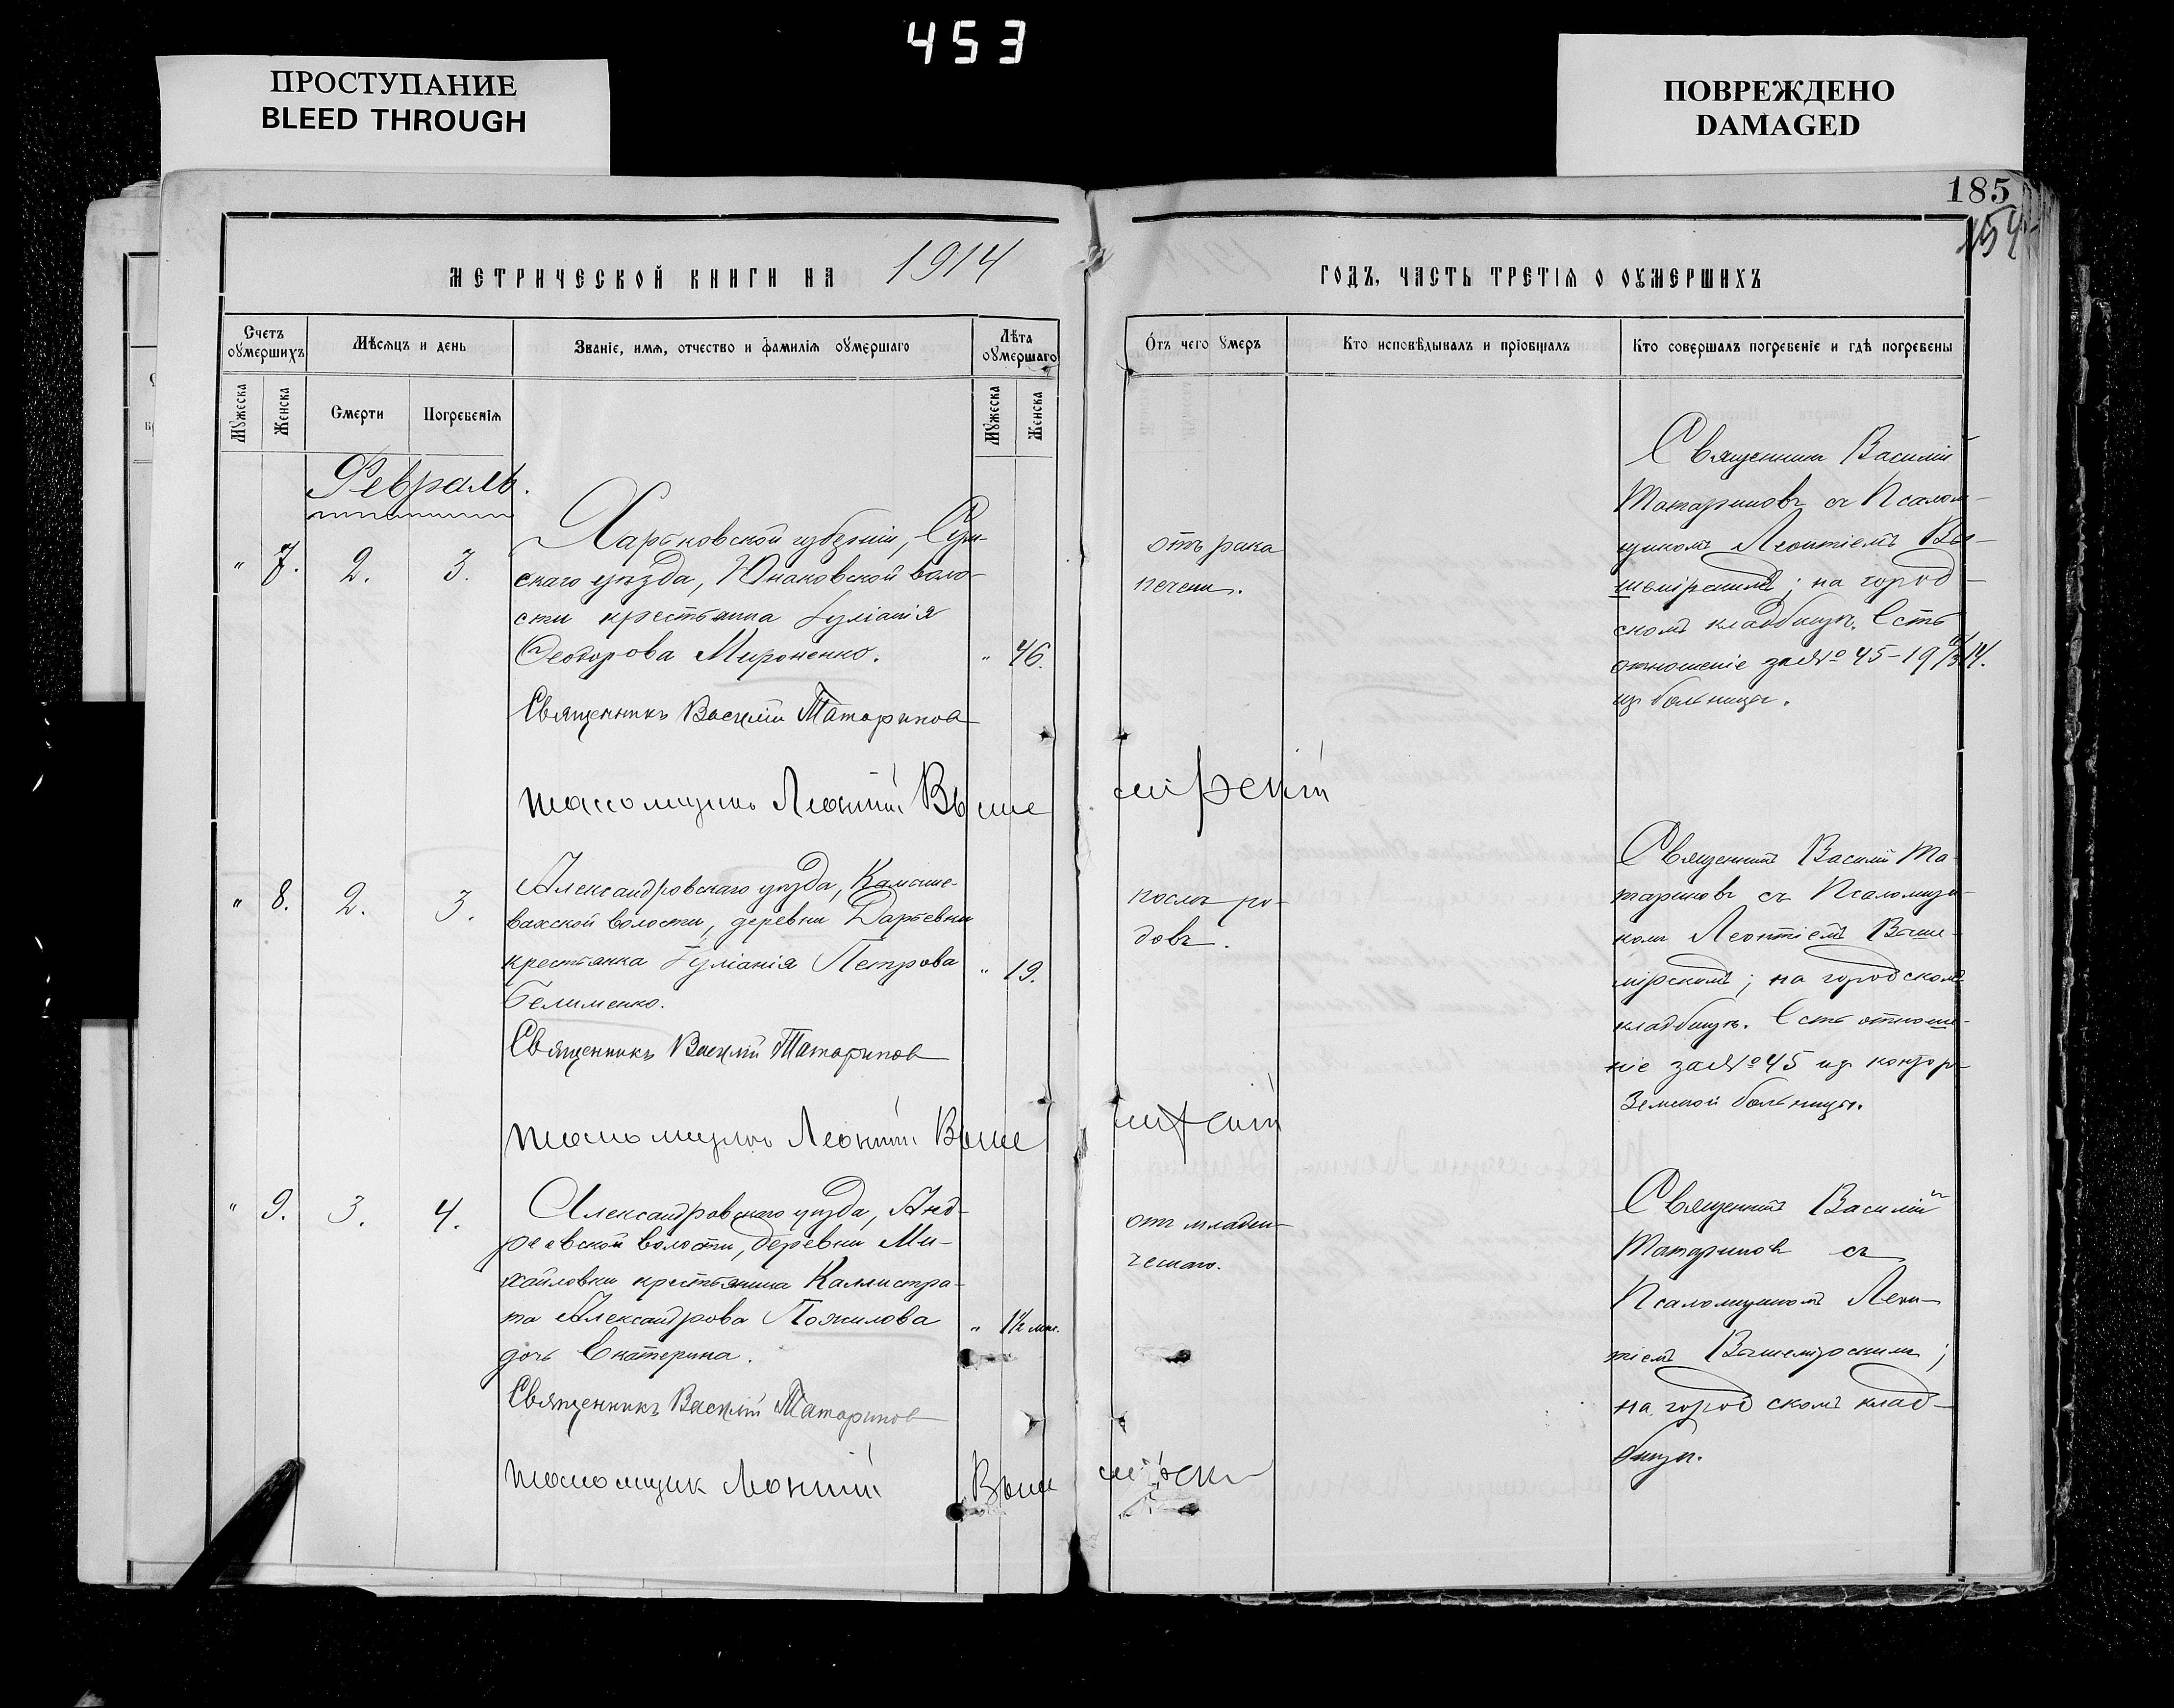 453
ПРОСТУПАНИЕ
BLEED THROUGH
ПОВРЕЖДЕНО
DAMAGED
185
154
МЕТРИЧЕСКОЙ КНИГИ НА 1914
ГОДЪ, ЧАСТЬ ТРЕТІЯ О ОУМЕРШИХЪ
Счетъ оумершихъ
Мѣсяцъ и день
Званіе, имя, отчество и фамилія оумершаго
Лѣта оумершаго
Мужеска
Женска
Смерти
Погребенія
Мужеска
Женска
Отъ чего умеръ
Кто исповѣдывалъ и пріобщалъ
Кто совершалъ погребеніе и гдѣ погребены
Февраль.
" 7. 2. 3.
Харьковской губерніи, Сум-
скаго уѣзда, Юнаковской воло-
сти крестьянка Іуліанія
Ѳеодорова Мироненко.
" 46.
Священникъ Василій Татаринов
псаломщикъ Леонтій Выше
мірскій
отъ рака
печени.
Священникъ Василій
Татариновъ съ Псалом-
щикомъ Леонтіемъ Вы-
шемірскимъ; на город-
скомъ кладбищѣ. Есть
отношеніе за № 45-19
из больницы.
" 8. 2. 3.
Александровскаго уѣзда, Камыше-
вахской волости, деревни Дарьевки
крестьянка Іуліанія Петрова
" 19.
Священникъ Василій Татаринов
псаломщикъ Леонтій Выше
мірскій
послѣ ро-
довъ.
Священникъ Василій Та-
тариновъ съ Псаломщи-
комъ Леонтіемъ Выше-
мірскимъ; на городскомъ
кладбищѣ. Есть отноше-
ніе за № 45 из конторы
Земской больницы.
" 9. 3. 4.
Александровскаго уѣзда, Анд-
реевской волости, деревни Ми-
хайловки крестьянина Каллистра-
та Александрова Пожилова
дочь Екатерина.
" 1½ мѣс.
Священникъ Василій Татаринов
псаломщик Леонтій Выше
мірски
отъ младен-
ческаго.
Священникъ Василій
Татаринов съ
Псаломщикомъ Леон-
тіемъ Вышемірскимъ;
на городскомъ клад-
бищѣ.